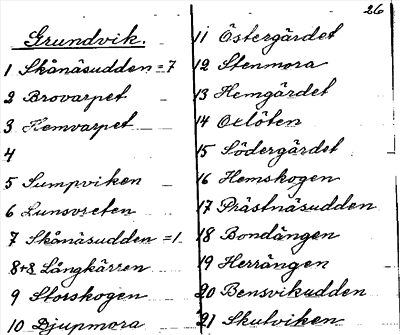 26
Grundvik.
1 Skånäsudden = 7
2 Brovarpet
3 Hemvarpet
4
5 Sumpviken
6
7 Skånäsudden = 1
8+8 Långkärren
9 Storskogen
10 Djupmora
11 Östergärdet
12 Stenmora
13 Hemgärdet
14 Oxlöten
15 Södergärdet
16 Hemskogen
17 Prästnäsudden
18 Bondängen
19 Herrängen
20 Bensvikudden
21 Skutviken